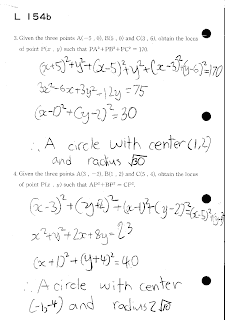 L 154b
3. Given the three points A(−5, 0), B(5, 0) and C(3, 6), obtain the locus
of point P(x, y) such that PA²+PB²+PC² = 170.
(x+5)²+y²+(x-5)²+y²+(x-3)²+(y-6)²=170
3x²-6x+3y²-12y=75
(x-1)²+(y-2)²=30
∴ A circle with center (1,2)
and radius √30
4. Given the three points A(3, −2), B(1, 2) and C(5, 4), obtain the locus
of point P(x, y) such that AP²+BP² = CP².
(x-3)²+(y+2)²+(x-1)²+(y-2)²=(x-5)²+(y-4)²
x²+y²+2x+8y=23
(x+1)²+(y+4)²=40
∴ A circle with center
(-1,-4) and radius 2√10